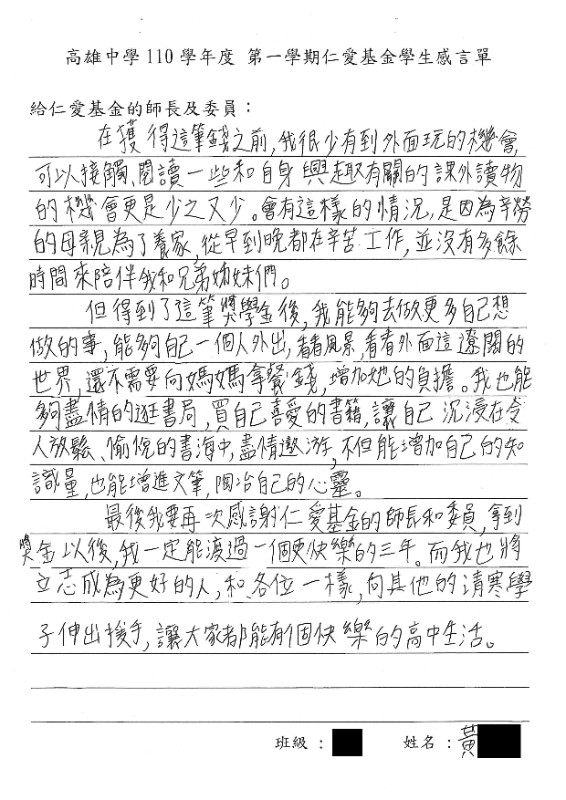 高雄中學 110 學年度 第一學期仁愛基金學生感言單
給仁愛基金的師長及委員：
在獲得這筆錢之前,我很少有到外面玩的機會,
可以接觸、閱讀一些和自身興趣有關的課外讀物
的機會更是少之又少。會有這樣的情況,是因為辛勞
的母親為了養家,從早到晚都在辛苦工作,並沒有多餘
時間來陪伴我和兄弟姊妹們。
但得到了這筆獎學金後,我能夠去做更多自己想
做的事,能夠自己一個人外出,看看風景,看看外面這遼闊的
世界,還不需要向媽媽拿餐錢,增加她的負擔。我也能
夠盡情的逛書局,買自己喜愛的書籍,讓自己沉浸在令
人放鬆、愉悅的書海中,盡情遨游,不但能增加自己的知
識量,也能增進文筆,陶冶自己的心靈。
最後我要再一次感謝仁愛基金的師長和委員,拿到
獎金以後,我一定能渡過一個更快樂的三年。而我也將
立志成為更好的人,和各位一樣,向其他的清寒學
子伸出援手,讓大家都能有個快樂的高中生活。
班級： 姓名：黃